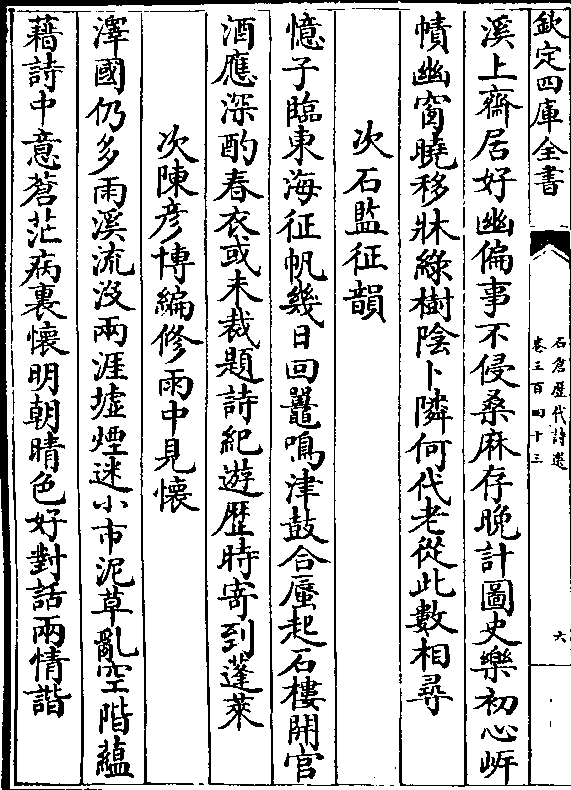 欽定四庫全書
石倉歷代詩選
卷三百四十三
六
溪上齋居好幽偏事不侵桑麻存晚計圖史樂初心岸
幘幽窗曉移牀綠樹陰卜隣何代老從此數相尋
次石監征韻
憶子臨東海征帆幾日回鼉鳴津鼓合蜃起石樓開官
酒應深酌春衣或未裁題詩紀遊歷時寄到蓬萊
次陳彦博編修雨中見懷
澤國仍多雨溪流没兩涯墟煙迷小市泥草亂空階藴
藉詩中意蒼茫病裏懷明朝晴色好對話兩情諧